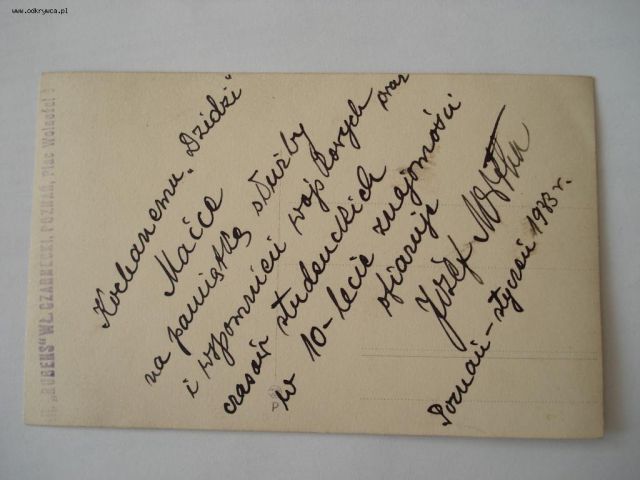 www.odkrywca.pl
Kochanemu „Dzidzi"
Maćce
na pamiątkę służby
i wspomnień wojskowych oraz
czasów studenckich
w 10-lecie znajomości
ofiaruje
Józef
Poznań – styczeń 1933 r.
„RUBENS" WŁ. CZARNECKI, POZNAŃ, Plac Wolności
P